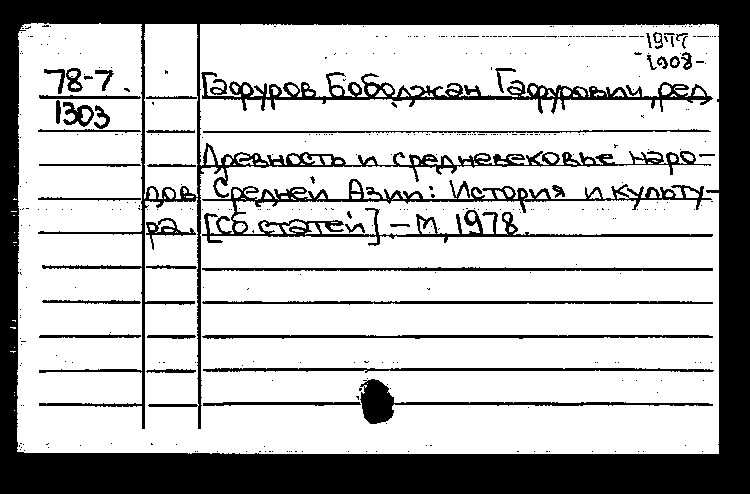 1977
-1908-
78-7.
1303
Гафуров, Бободжан Гафурович, ред.
Древность и средневековье наро-
дов Средней Азии: История и культу-
ра. [Сб. статей] – М, 1978.